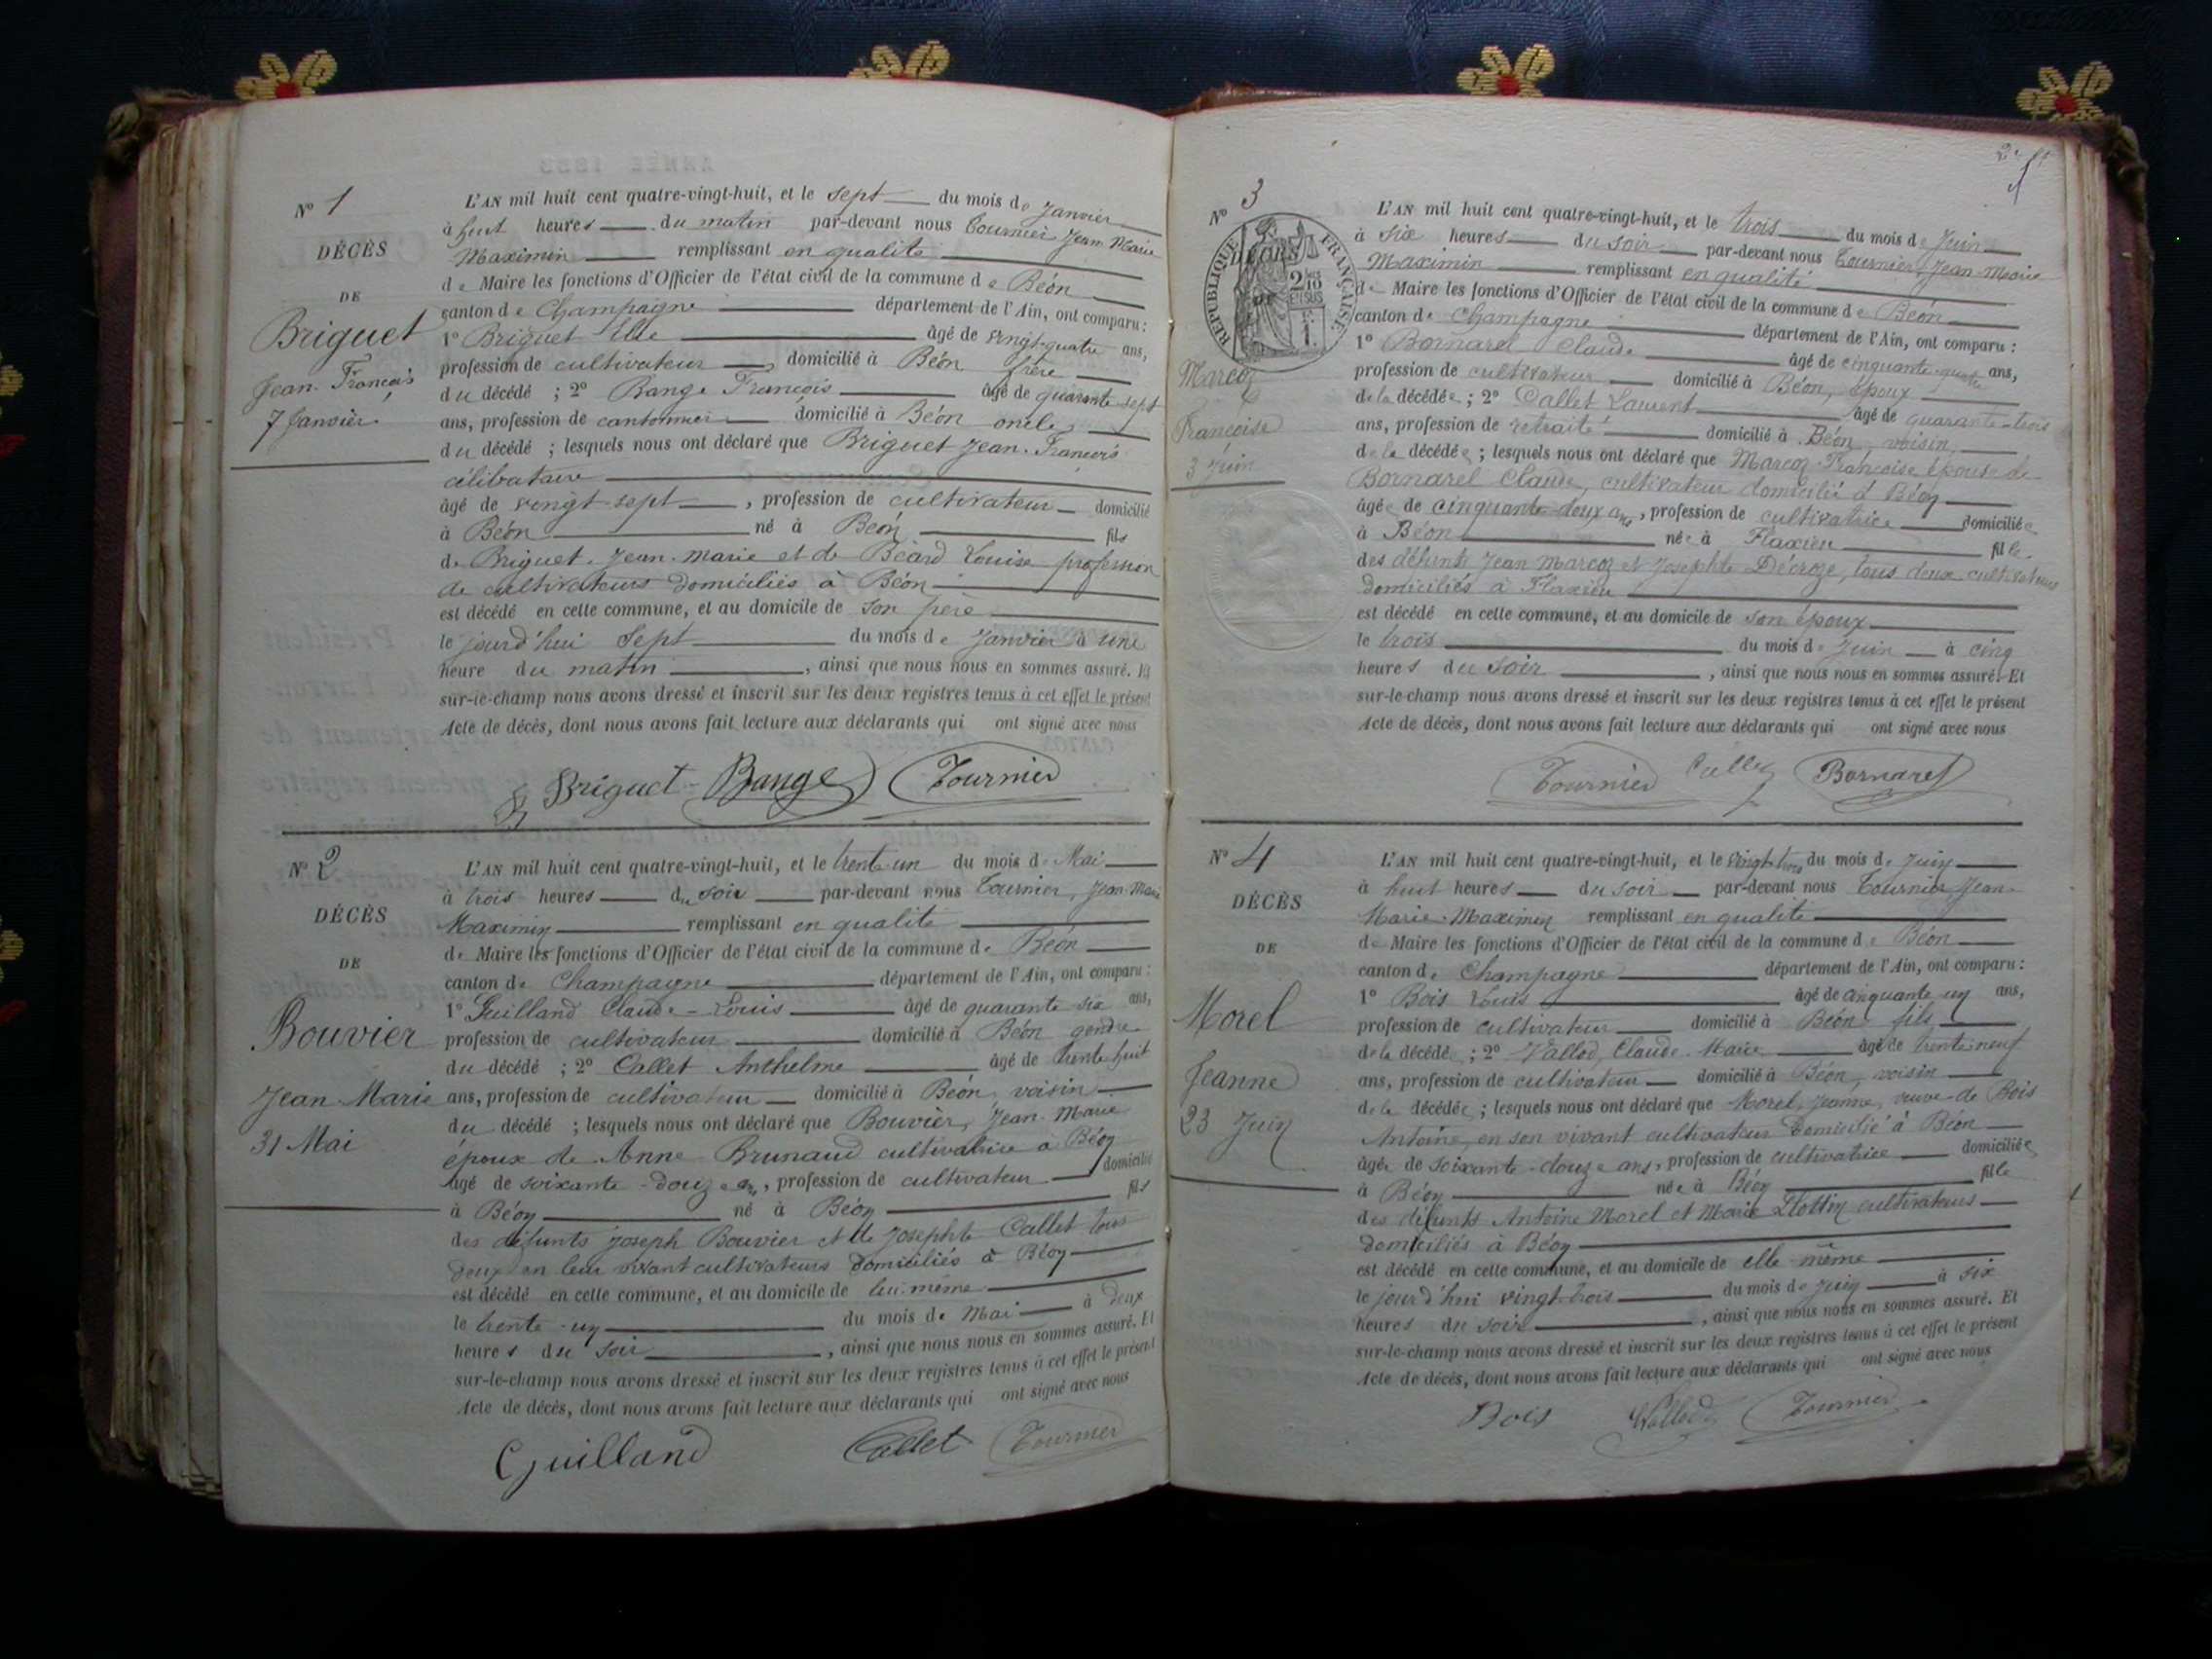 N° 1
DÉCÈS
DE
Briguet
Jean-François
7 Janvier
L'AN mil huit cent quatre-vingt-huit, et le sept du mois de Janvier
à huit heures du matin par-devant nous Tournier Jean Marie
Maximin remplissant en qualité
de Maire les fonctions d'Officier de l'état civil de la commune de Béon
canton de Champagne département de l'Ain, ont comparu :
1° Briguet âgé de vingt-quatre ans,
profession de cultivateur domicilié à Béon frère
du décédé ; 2° Bange François âgé de quarante-sept
ans, profession de cantonnier domicilié à Béon oncle
du décédé ; lesquels nous ont déclaré que Briguet Jean-François
célibataire
âgé de vingt-sept , profession de cultivateur domicilié
à Béon né à Béon fils
de Briguet Jean-marie et de Béard Louise profession
de cultivateurs domiciliés à Béon
est décédé en cette commune, et au domicile de son père
le jourd'hui sept du mois de Janvier à une
heure du matin , ainsi que nous nous en sommes assuré. Et
sur-le-champ nous avons dressé et inscrit sur les deux registres tenus à cet effet le présent
Acte de décès, dont nous avons fait lecture aux déclarants qui ont signé avec nous
Briguet Bange Tournier
N° 2
DÉCÈS
DE
Bouvier
Jean-Marie
31 Mai
L'AN mil huit cent quatre-vingt-huit, et le trente-un du mois de Mai
à trois heures du soir par-devant nous Tournier, Jean-Marie
Maximin remplissant en qualité
de Maire les fonctions d'Officier de l'état civil de la commune de Béon
canton de Champagne département de l'Ain, ont comparu :
1° Guilland Claude-Louis âgé de quarante six ans,
profession de cultivateur domicilié à Béon gendre
du décédé ; 2° Callet Anthelme âgé de trente huit
ans, profession de cultivateur domicilié à Béon, voisin
du décédé ; lesquels nous ont déclaré que Bouvier, Jean-Marie
époux de Anne Brunaud cultivatrice à Béon
âgé de soixante-douze ans, profession de cultivateur domicilié
à Béon né à Béon fils
des défunts joseph Bouvier et de Josephte Callet tous
deux en leur vivant cultivateurs domiciliés à Béon
est décédé en cette commune, et au domicile de lui-même
le trente-un du mois de Mai à deux
heures du soir , ainsi que nous nous en sommes assuré. Et
sur-le-champ nous avons dressé et inscrit sur les deux registres tenus à cet effet le présent
Acte de décès, dont nous avons fait lecture aux déclarants qui ont signé avec nous
Guilland Callet Tournier
N° 3
RÉPUBLIQUE FRANÇAISE
DÉCÈS
2/10 EN SUS
Marcoz
Françoise
3 Juin
L'AN mil huit cent quatre-vingt-huit, et le trois du mois de Juin
à six heures du soir par-devant nous Tournier, Jean-Marie
Maximin remplissant en qualité
de Maire les fonctions d'Officier de l'état civil de la commune de Béon
canton de Champagne département de l'Ain, ont comparu :
1° Bornarel Claude âgé de cinquante-quatre ans,
profession de cultivateur domicilié à Béon, époux
de la décédée ; 2° Callet Laurent âgé de quarante-trois
ans, profession de retraité domicilié à Béon, voisin
de la décédée ; lesquels nous ont déclaré que Marcoz Françoise épouse de
Bornarel Claude, cultivateur domicilié à Béon
âgée de cinquante-deux ans, profession de cultivatrice domiciliée
à Béon née à Flaxieu fille
des défunts Jean Marcoz et Josephte Décroze, tous deux cultivateurs
domiciliés à Flaxieu
est décédé en cette commune, et au domicile de son époux
le trois du mois de Juin à cinq
heures du soir , ainsi que nous nous en sommes assuré. Et
sur-le-champ nous avons dressé et inscrit sur les deux registres tenus à cet effet le présent
Acte de décès, dont nous avons fait lecture aux déclarants qui ont signé avec nous
Tournier Callet Bornarel
N° 4
DÉCÈS
DE
Morel
Jeanne
23 Juin
L'AN mil huit cent quatre-vingt-huit, et le vingt-trois du mois de Juin
à huit heures du soir par-devant nous Tournier Jean-
Marie-Maximin remplissant en qualité
de Maire les fonctions d'Officier de l'état civil de la commune de Béon
canton de Champagne département de l'Ain, ont comparu :
1° Bois Louis âgé de cinquante un ans,
profession de cultivateur domicilié à Béon fils
de la décédé ; 2° Vallod, Claude-Marie âgé de trente-neuf
ans, profession de cultivateur domicilié à Béon, voisin
de la décédée ; lesquels nous ont déclaré que Morel, Jeanne, veuve de Bois
Antoine, en son vivant cultivateur domicilié à Béon
âgée de soixante-douze ans, profession de cultivatrice domiciliée
à Béon née à Béon fille
des défunts Antoine Morel et Marie cultivateurs
domiciliés à Béon
est décédé en cette commune, et au domicile de elle-même
le jourd'hui vingt-trois du mois de Juin à six
heures du soir , ainsi que nous nous en sommes assuré. Et
sur-le-champ nous avons dressé et inscrit sur les deux registres tenus à cet effet le présent
Acte de décès, dont nous avons fait lecture aux déclarants qui ont signé avec nous
Bois Vallod Tournier